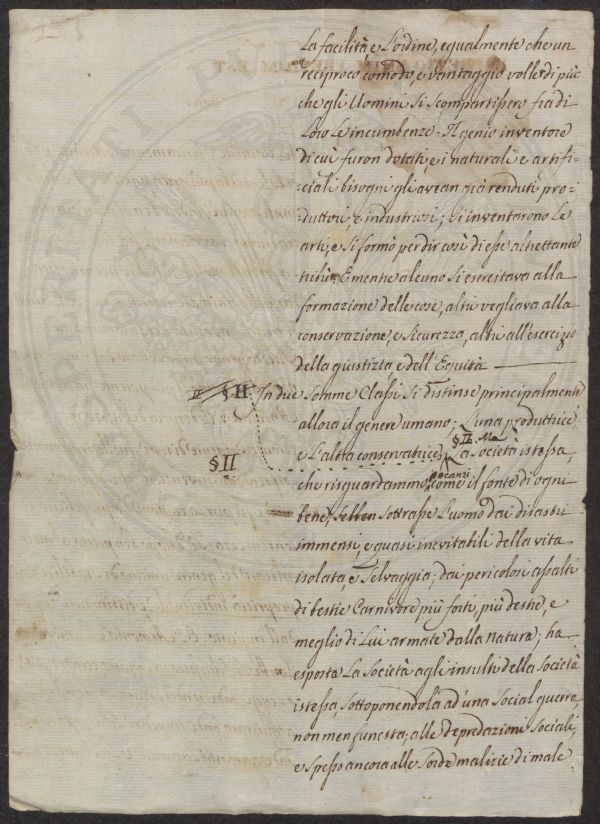 La facilità, e L'ordine, egualmente che un
reciproco comodo, e vantaggio volle di più
che gli Uomini si scompartissero fra di
Loro Le incumbenze. Il genio inventore
di cui furon dotati, e i naturali e artifi-
:ciali bisogni gli avean già renduti pro-
:duttori, e industriosi; Si inventarono Le
arti, e si formò per dir così di esse altrettante
tribù. E mentre alcuno si esercitava alla
formazione delle cose, altri vegliava alla
conservazione, e sicurezza, altri all'esercizio
della giustizia, e dell'Equità
§ II. In due somme Classi si distinse principalmente
allora il genere umano; L'una produttrice,
§ II. Ma
e L'altra conservatrice, La società istessa,
§ II
pocanzi
che risguardammo, come il fonte di ogni
bene, sebben sottrasse L'uomo dai disastri
immensi, e quasi inevitabili della vita
isolata, e selvaggia; dai pericolosi assalti
di bestie Carnivore più forti, più destre, e
meglio di Lui armate dalla natura; ha
esposta La Società agli insulti della Società
istessa, sottoponendola ad una social guerra,
non men funesta, alle depredazioni sociali,
e spesso ancora alle sorde malizie di male